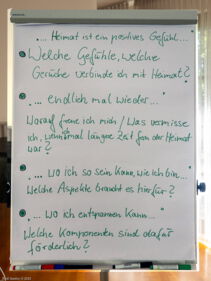 ... Heimat ist ein positives Gefühl...
Welche Gefühle, welche
Gerüche verbinde ich mit Heimat?
... endlich mal wieder...
Worauf freue ich mich / Was vermisse
ich, wenn mal längere Zeit fern der Heimat
war?
... wo ich so sein kann, wie ich bin...
Welche Aspekte braucht es hierfür?
... wo ich entspannen kann...
Welche Komponenten sind dafür
förderlich?